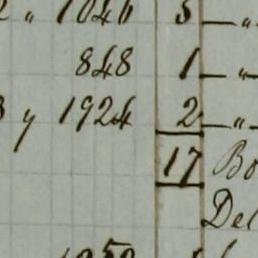 " 1046 5 — "
848 1 — "
y 1924 2 — "
17 Bo
Del